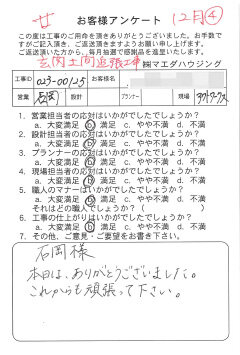 お客様アンケート 12月④
この度は工事のご用命を頂きありがとうございました。お手数で
すがご記入頂き、ご返送頂きますようお願い申し上げます。
ご返送頂いた方から、毎月抽選で感謝品を進呈いたします。
玄関土間返張工事 ㈱マエダハウジング
工事ID 023-00125 お客様名
営業 石岡 設計 プランナー 現場 アクトワークス
1. 営業担当者の応対はいかがでしたでしょうか?
a. 大変満足 b 満足 c. やや不満 d. 不満
2. 設計担当者の応対はいかがでしたでしょうか?
a. 大変満足 b 満足 c. やや不満 d. 不満
3. プランナーの応対はいかがでしたでしょうか?
a. 大変満足 b 満足 c. やや不満 d. 不満
4. 現場担当者の応対はいかがでしたでしょうか?
a. 大変満足 b 満足 c. やや不満 d. 不満
5. 職人のマナーはいかがでしたでしょうか?
a. 大変満足 b 満足 c. やや不満 d. 不満
それはどの職人でしょうか? ( )
6. 工事の仕上がりはいかがでしたでしょうか?
a. 大変満足 b 満足 c. やや不満 d. 不満
7. その他、ご意見・ご要望をお書き下さい。
石岡様
本日は、ありがとうございました。
これからも頑張って下さい。